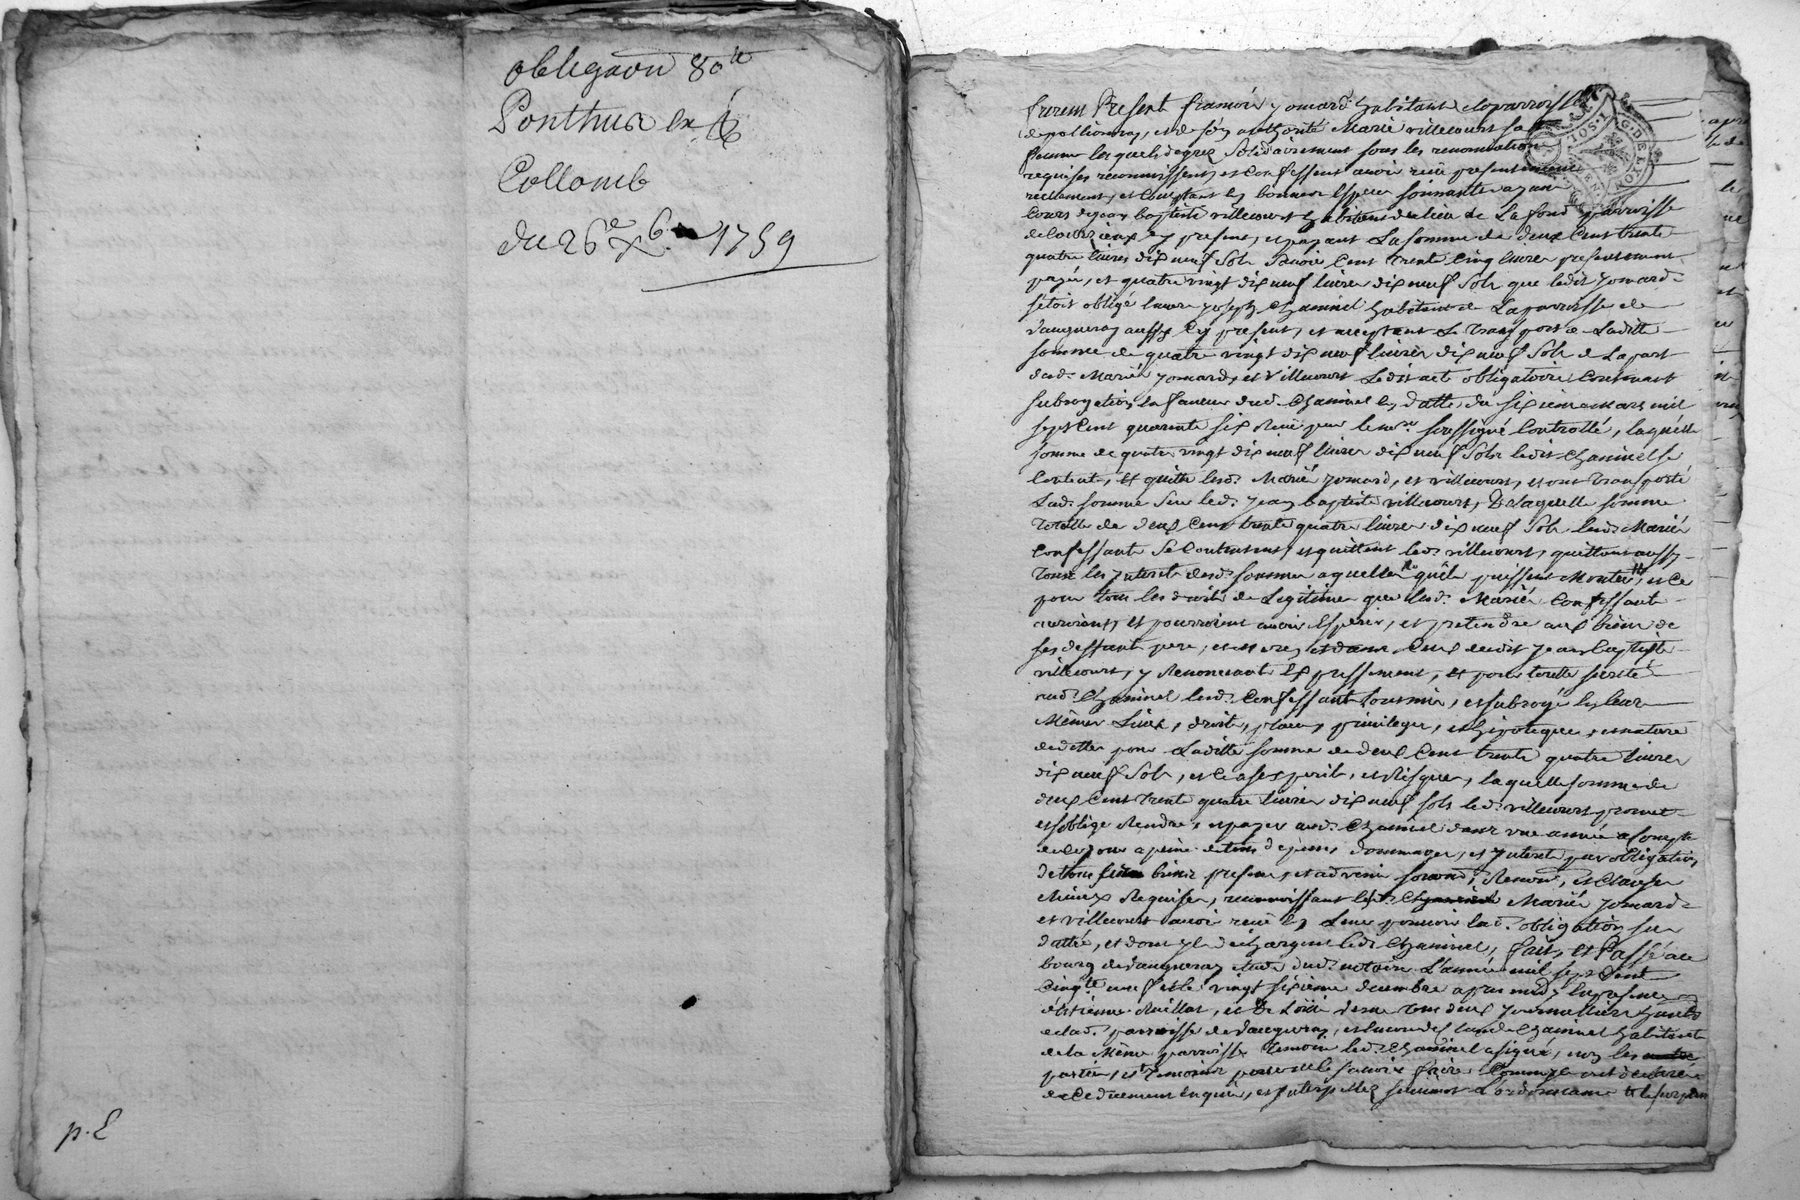 obligaõn 80 tt
Ponthus ex
Collomb
du 26e Xbre 1759
p. E
furent Present francois jomard habitant de la parroisse
de pollionnay, et de son authorité Marie villecourt sa
femme lesquels de gréz solidairement sous les renonciations
requises reconnoissent, et confessent avoir reçu presentement
reellement, et comptant en bonnes especes sonnantes ayant
Cours de jean baptiste villecourt habitant du lieu de La fond parroisse
de Courzieux cy present, et payant La somme de deux Cent trente
quatre livres dix neuf sols scavoir Cent trente Cinq livres presentement
payés, et quatre vingt dix neuf livres dix neuf sols que ledit jomard
s'etoit obligé envers joseph Chaminel habitant de La parroisse de
vaugneray aussy cy present, et acceptant Le transport de Laditte
somme de quatre vingt dix neuf livres dix neuf sols de La part
desd. Mariés jomard, et villecourt Ledit acte obligatoire Contenant
subrogation en faveur dud. Chaminel en datte du sixieme mars mil
sept Cent quarente six Reçu par le nore soussigné Controllé, laquelle
somme de quatre vingt dix neuf livres dix neuf sols ledit Chaminel se
Contente, Et quitte lesd. Mariés jomard, et villecourt, et ont transporté
Lad. somme sur led. jean baptiste villecourt, De laquelle somme
totalle de deux Cent trente quatre livres dix neuf sols lesd. Mariés
Confessants se Contentent, et quittent led. villecourt, quittant aussy
tous les interets desd. sommes a quelles qu'ils puissent Monter, et Ce
pour tous les droits de Legitime que lesd. Mariés Confessants
auroient, et pourroient avoir Esperer, et pretendre aux biens de
ses deffunts pere, et mere et dans Ceux dudit jean baptiste
villecourt, y Renoncants Expressement, et pour toutte sureté
aud. Chaminel lesd. Confessants l'ont mis, et subrogé en leurs
Mêmes Lieux, droits, places, privileges, et hipoteques, et nature
de dettes pour Laditte somme de deux Cent trente quatre livres
dix neuf sols, et Ce a ses perils, et Risques, laquelle somme de
deux Cent trente quatre livres dix neuf sols led. villecourt promet
et s'oblige Rendre, et payer aud. Chaminel dans une année a Compter
de Ce jour a peine de tous depens, dommages, et interets par obligation
de tous ses biens presens, et advenir soumis, Renon., et Clauses
Mieux Requises, reconnoissant lesd. Mariés jomard
et villecourt avoir reçu en Leur pouvoir lad. obligation sus
dattée, et dont ils dechargent led. Chaminel, fait, et Passé au
bourg de vaugneray etude dud. notaire L'année mil sept Cent
Cinqte neuf et le vingt sixieme decembre apres midy en presence
d'etienne tous deux journalliers
de lad. parroisse de vaugneray, Chaminel habitant
de la Même parroisse temoins led. Chaminel a signé, non les
parties, et temoins pour ne le scavoir faire Comme ils ont declaré
de Ce duement enquis, et interpellez suivant L'ordonnance